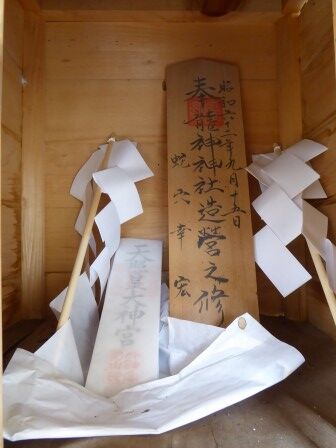 昭和六十二年九月十五日
奉龍神神社造営之修
蛇穴幸宏
天照皇大神宮